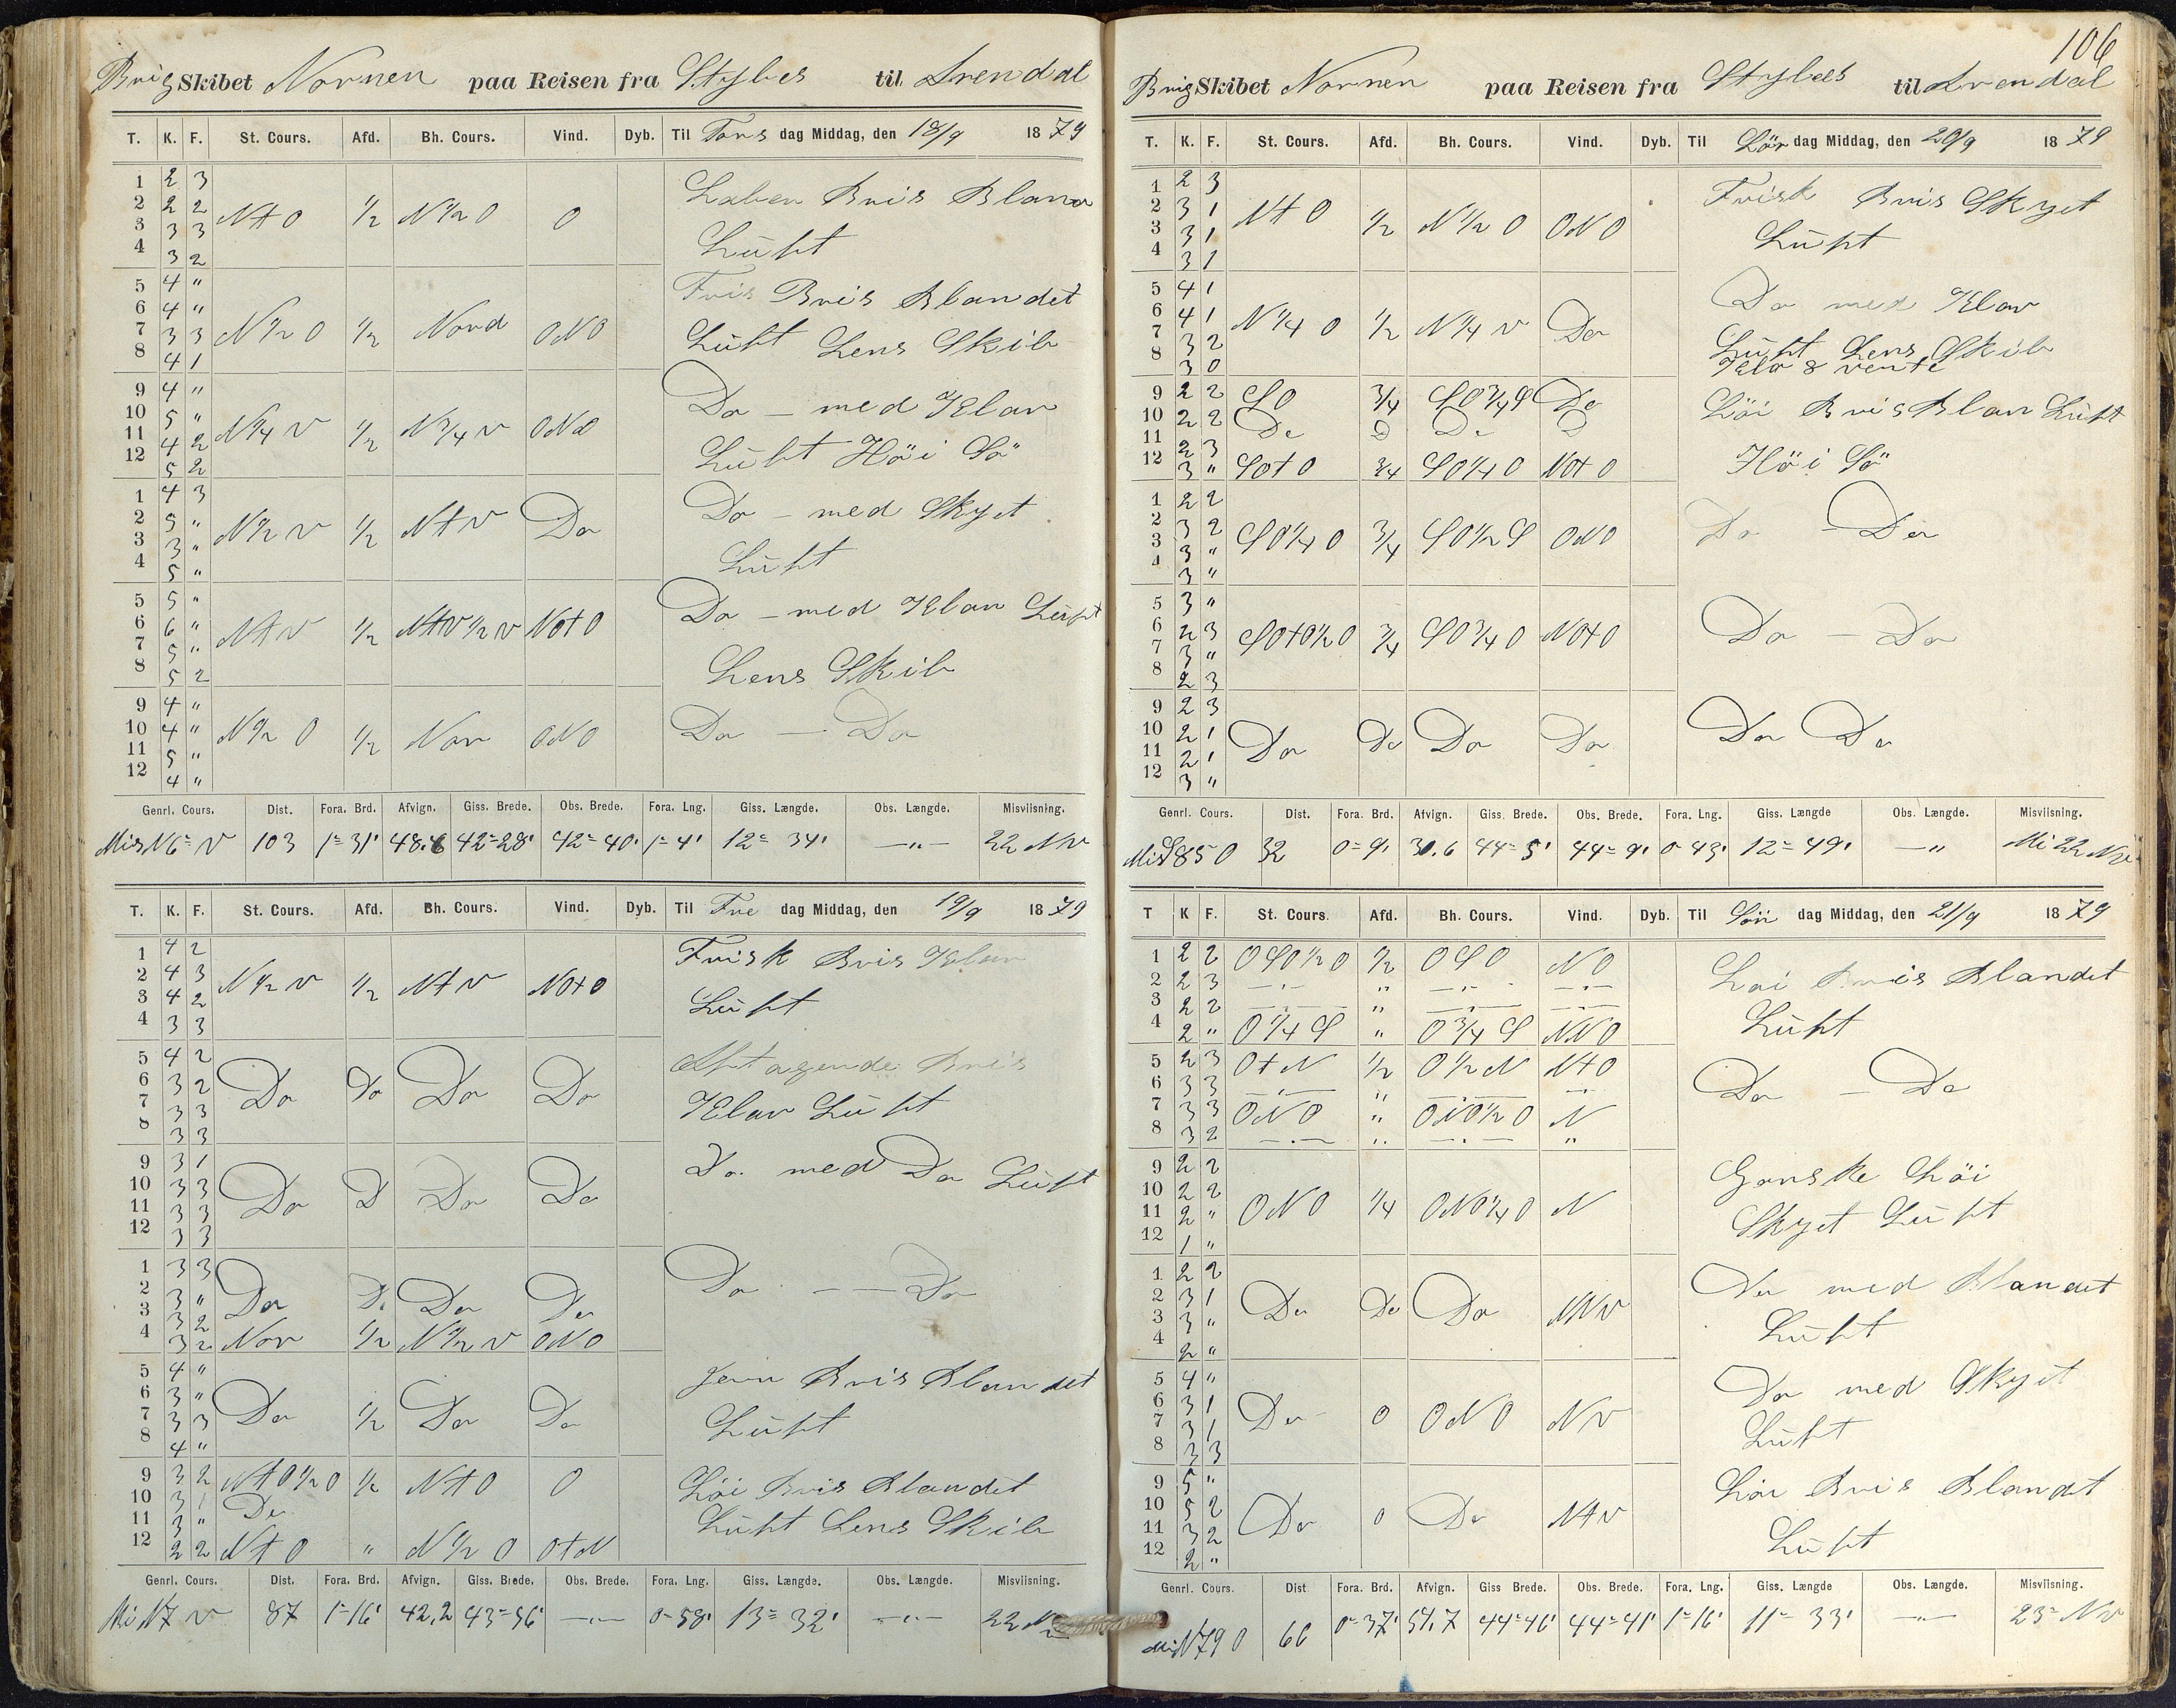 106
Brig Skibet Nornen paa Reisen fra Stylves til Arendal
T. K. F. St. Cours. Afd. Bh. Cours. Vind. Dyb. Til Tors dag Middag, den 18/9 1879
1 2 3
2 2 2 Nt O 1/2 N 1/2 O O Laber Bris Blana
3 3 3
4 3 2 Lüft
5 4 " Fris Bris Blandet
6 4 "
7 3 3 N 1/2 O 1/2 Nord ONO Lüft Lens Skib
8 4 1
9 4 " Do — med Klar
10 5 "
11 4 2 N 1/4 V 1/2 N 3/4 V ONO
12 5 2 Lüft Höi Sö
1 4 3 Do — med Skyet
2 5 " N 1/2 V 1/2 Nt V Do
3 3 "
4 5 " Lüft
5 5 " Do — med Klar Lüft
6 6 " Nt V 1/2 Nt V 1/2 V NOt O
7 5 "
8 5 2 Lens Skib
9 4 "
10 4 " N 1/2 O 1/2 Nor ONO Do — Do
11 5 "
12 4 "
Genrl. Cours. Dist. Fora. Brd. Afvign. Giss. Brede. Obs. Brede. Fora. Lng. Giss. Længde. Obs. Længde. Misviisning.
Mis N 6° V 103 1° 31' 48.6 42° 28' 42° 40' 1° 4' 12° 34' —"— 22 NV
T. K. F. St. Cours. Afd. Bh. Cours. Vind. Dyb. Til Fre dag Middag, den 19/9 1879
1 4 2 Frisk Bris Klar
2 4 3 N 1/2 V 1/2 Nt V NOt O
3 4 2 Lüft
4 3 3
5 4 2 Aftagende Bris
6 3 2 Do Do Do Do
7 3 3 Klar Lüft
8 3 3
9 3 1 Do med Do Lüft
10 3 3 Do D Do Do
11 3 3
12 3 3
1 3 3 Do — — Do
2 3 " Do Do Do Do
3 3 2
4 3 2 Nor 1/2 N 1/2 V ONO
5 4 " Jevn Bris Blandet
6 3 "
7 3 3 Do 1/2 Do Do Lüft
8 4 "
9 3 2 Nt O 1/2 O 1/2 Nt O O Löi Bris Blandet
10 3 1 Do
11 3 " Lüft Lens Skib
12 2 2 Nt O " N 1/2 O Ot N
Genrl. Cours. Dist. Fora. Brd. Afvign. Giss. Brede. Obs. Brede. Fora. Lng. Giss. Længde. Obs. Længde. Misviisning.
Mi N 7 V 87 1° 16' 42,2 43° 56' —"— 0° 58' 13° 32' —"— 22
Brig Skibet Nornen paa Reisen fra Stylves til Arendal
T. K. F. St. Cours. Afd. Bh. Cours. Vind. Dyb. Til Lör dag Middag, den 20/9 1879
1 2 3 Frisk Bris Skyet
2 3 1 Nt O 1/2 N 1/2 O ONO
3 3 1 Lüft
4 3 1
5 4 1 Do med Klar
6 4 1 N 1/4 O 1/2 N 1/4 V Do
7 3 2 Lüft Lens Skib
8 3 0 Klo 8 vente
9 2 2 SO 3/4 SO 3/4 S Do Löi Bris Blan Lüft
10 2 2 Do D Do D
11 2 3 Höi Sö
12 3 " SOt O 3/4 SO 1/4 O NOt O
1 2 2
2 3 2 SO 1/4 O 3/4 SO 1/2 S ONO Do — Do
3 3 "
4 3 "
5 3 "
6 2 3 SOt O 1/2 O 3/4 SO 3/4 O NOt O Do — Do
7 3 "
8 2 3
9 2 3
10 2 1 Do Do Do Do Do Do
11 2 1
12 3 "
Genrl. Cours. Dist. Fora. Brd. Afvign. Giss. Brede. Obs. Brede. Fora. Lng. Giss. Længde Obs. Længde. Misviisning.
Mis S 85 O 32 0° 9' 30.6 44° 5' 44° 9' 0° 43' 12° 49' —" Mi 22 NV
T K F. St. Cours. Afd. Bh. Cours. Vind. Dyb. Til Sön dag Middag, den 21/9 1879
1 2 2 OSO 1/2 O 1/2 OSO NO
2 2 3 —"— " —"— —"— Löi Bris Blandet
3 2 2 —"— " —"— —"—
4 2 " O 1/4 S " O 3/4 S NNO Lüft
5 2 3 Ot N 1/2 O 1/2 N Nt O
6 3 3 —"— " —"— —"— Do — Do
7 3 3 ONO " ONO 1/2 O N
8 3 2 —"— " —"— "
9 2 2 Ganske Löi
10 2 2
11 2 " ONO 1/4 ONO 1/4 O N
12 1 " Skyet Lüft
1 2 2 Do med Blandet
2 3 1 Do Do Do NNV
3 3 " Lüft
4 2 "
5 4 " Do med Skyet
6 3 1 Do O ONO NV
7 3 1 Lüft
8 3 3
9 5 " Löi Bris Blandet
10 5 2 Do O Do Nt V
11 3 2
12 2 " Lüft
Genrl. Cours. Dist Fora. Brd. Afvign. Giss Brede. Obs. Brede. Fora. Lng. Giss. Længde Obs. Længde. Misviisning.
Mis N 79 O 66 0° 37' 51.7 44° 46' 44° 41' 1° 16' 11° 33' —"— 23° NV